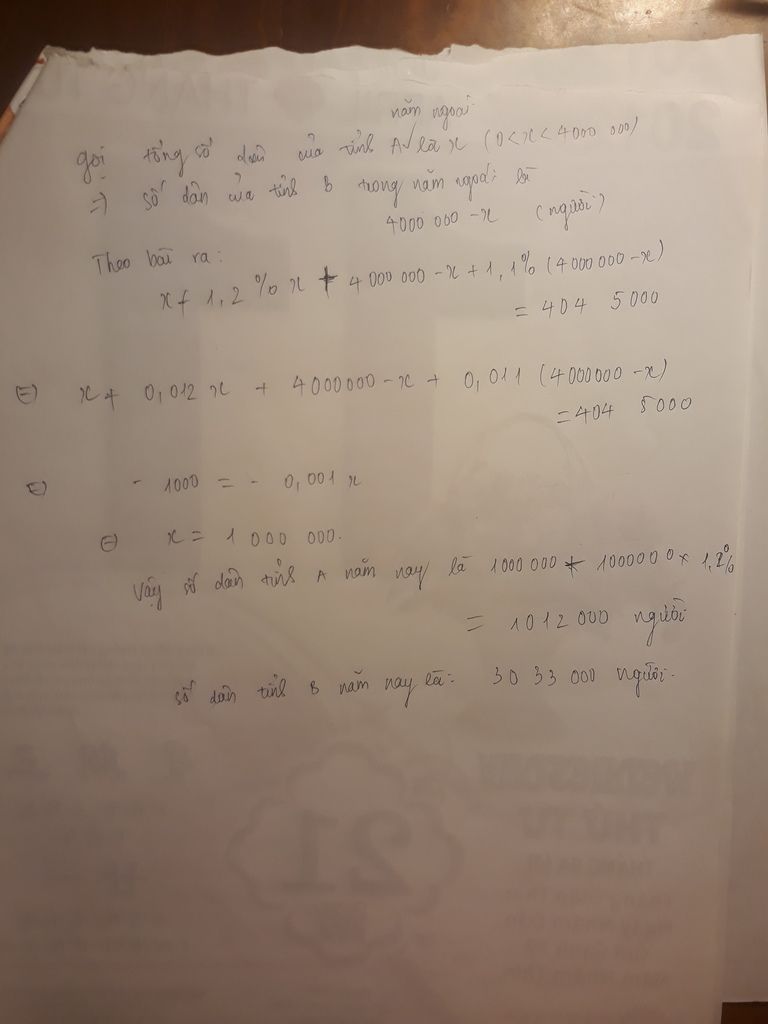 năm ngoái
gọi tổng số dân của tỉnh A√ là x (0<x<4000 000)
=) số dân của tỉnh B trong năm ngoái là
4000 000 -x (người)
Theo bài ra:
x+ 1,2 % x + 4 000 000 -x + 1,1% (4000 000 -x)
= 404 5000
(=) x+ 0,012 x + 4000000 -x + 0,011 (4000000 -x)
=404 5000
(=) - 1000 = - 0,001 x
(=) x = 1 000 000.
Vậy số dân tỉnh A năm nay là 1000 000 + 1000000 x 1,2%
= 1012 000 người
số dân tỉnh B năm nay là: 30 33 000 người.
21
THỨ TƯ
WEDNESDAY